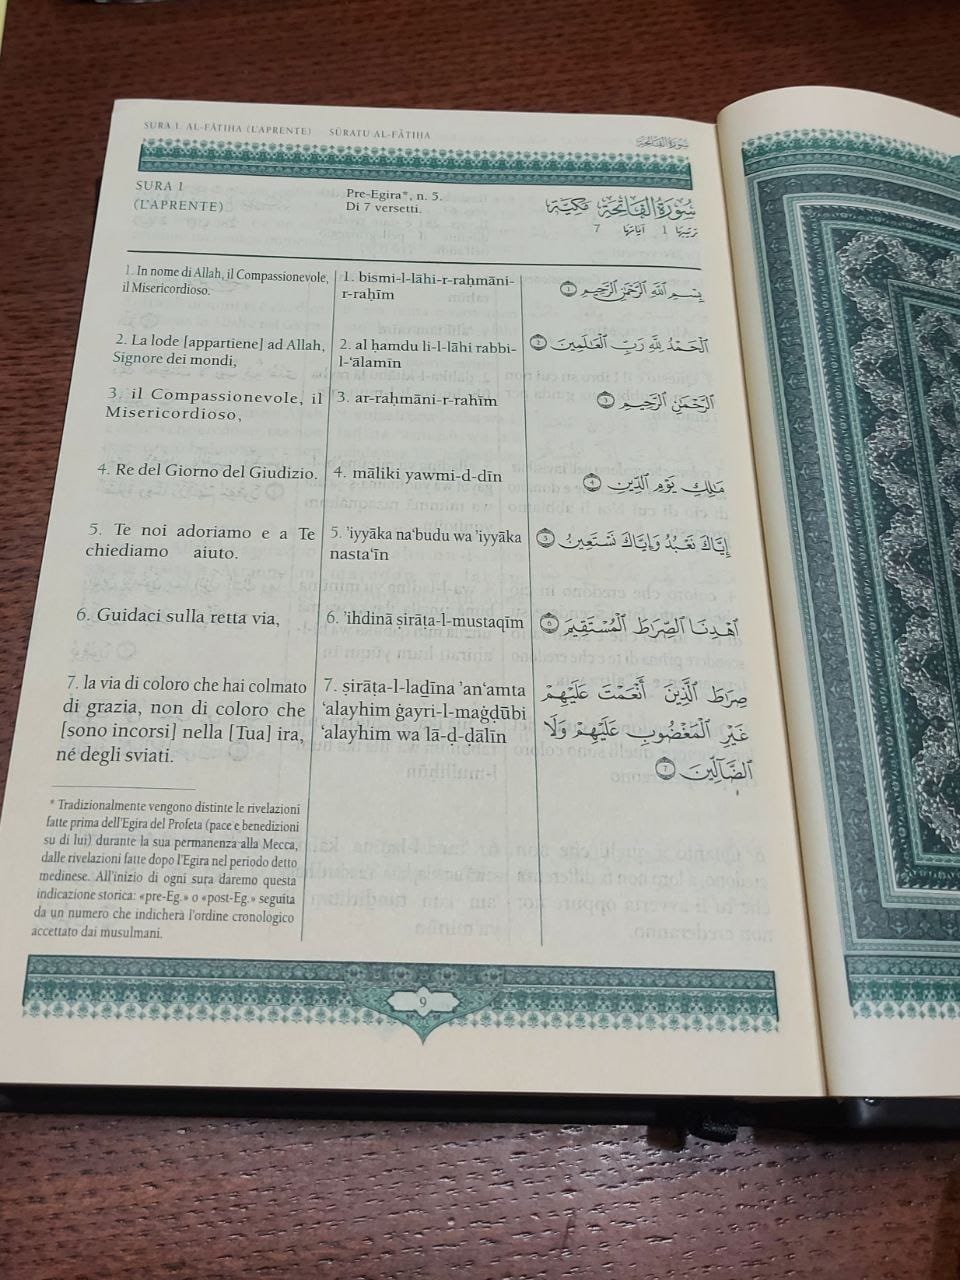 SURA 1. AL-FĀTIHA (L'APRENTE) SŪRATU AL-FĀTIHA
سُورَةُ الفَاتِحَة
SURA 1
(L'APRENTE)
Pre-Egira*, n. 5.
Di 7 versetti.
سُورَةُ الفَاتِحَةِ مَكِّيَّة
ترتيبها 1 آياتها 7
1. In nome di Allah, il Compassionevole,
il Misericordioso.
2. La lode [appartiene] ad Allah,
Signore dei mondi,
3. il Compassionevole, il
Misericordioso,
4. Re del Giorno del Giudizio.
5. Te noi adoriamo e a Te
chiediamo aiuto.
6. Guidaci sulla retta via,
7. la via di coloro che hai colmato
di grazia, non di coloro che
[sono incorsi] nella [Tua] ira,
né degli sviati.
* Tradizionalmente vengono distinte le rivelazioni
fatte prima dell'Egira del Profeta (pace e benedizioni
su di lui) durante la sua permanenza alla Mecca,
dalle rivelazioni fatte dopo l'Egira nel periodo detto
medinese. All'inizio di ogni sura daremo questa
indicazione storica: «pre-Eg.» o «post-Eg.» seguita
da un numero che indicherà l'ordine cronologico
accettato dai musulmani.
1. bismi-l-lāhi-r-raḥmāni-
r-raḥīm
2. al ḥamdu li-l-lāhi rabbi-
l-ʿālamīn
3. ar-raḥmāni-r-raḥīm
4. māliki yawmi-d-dīn
5. ʾiyyāka naʿbudu wa ʾiyyāka
nastaʿīn
6. ʾihdinā ṣirāṭa-l-mustaqīm
7. ṣirāṭa-l-laḏīna ʾanʿamta
ʿalayhim ġayri-l-maġḍūbi
ʿalayhim wa lā-d-dālīn
بِسْمِ ٱللَّهِ ٱلرَّحْمَٰنِ ٱلرَّحِيمِ ١
ٱلْحَمْدُ لِلَّهِ رَبِّ ٱلْعَٰلَمِينَ ٢
ٱلرَّحْمَٰنِ ٱلرَّحِيمِ ٣
مَٰلِكِ يَوْمِ ٱلدِّينِ ٤
إِيَّاكَ نَعْبُدُ وَإِيَّاكَ نَسْتَعِينُ ٥
ٱهْدِنَا ٱلصِّرَٰطَ ٱلْمُسْتَقِيمَ ٦
صِرَٰطَ ٱلَّذِينَ أَنْعَمْتَ عَلَيْهِمْ
غَيْرِ ٱلْمَغْضُوبِ عَلَيْهِمْ وَلَا
ٱلضَّآلِّينَ ٧
9